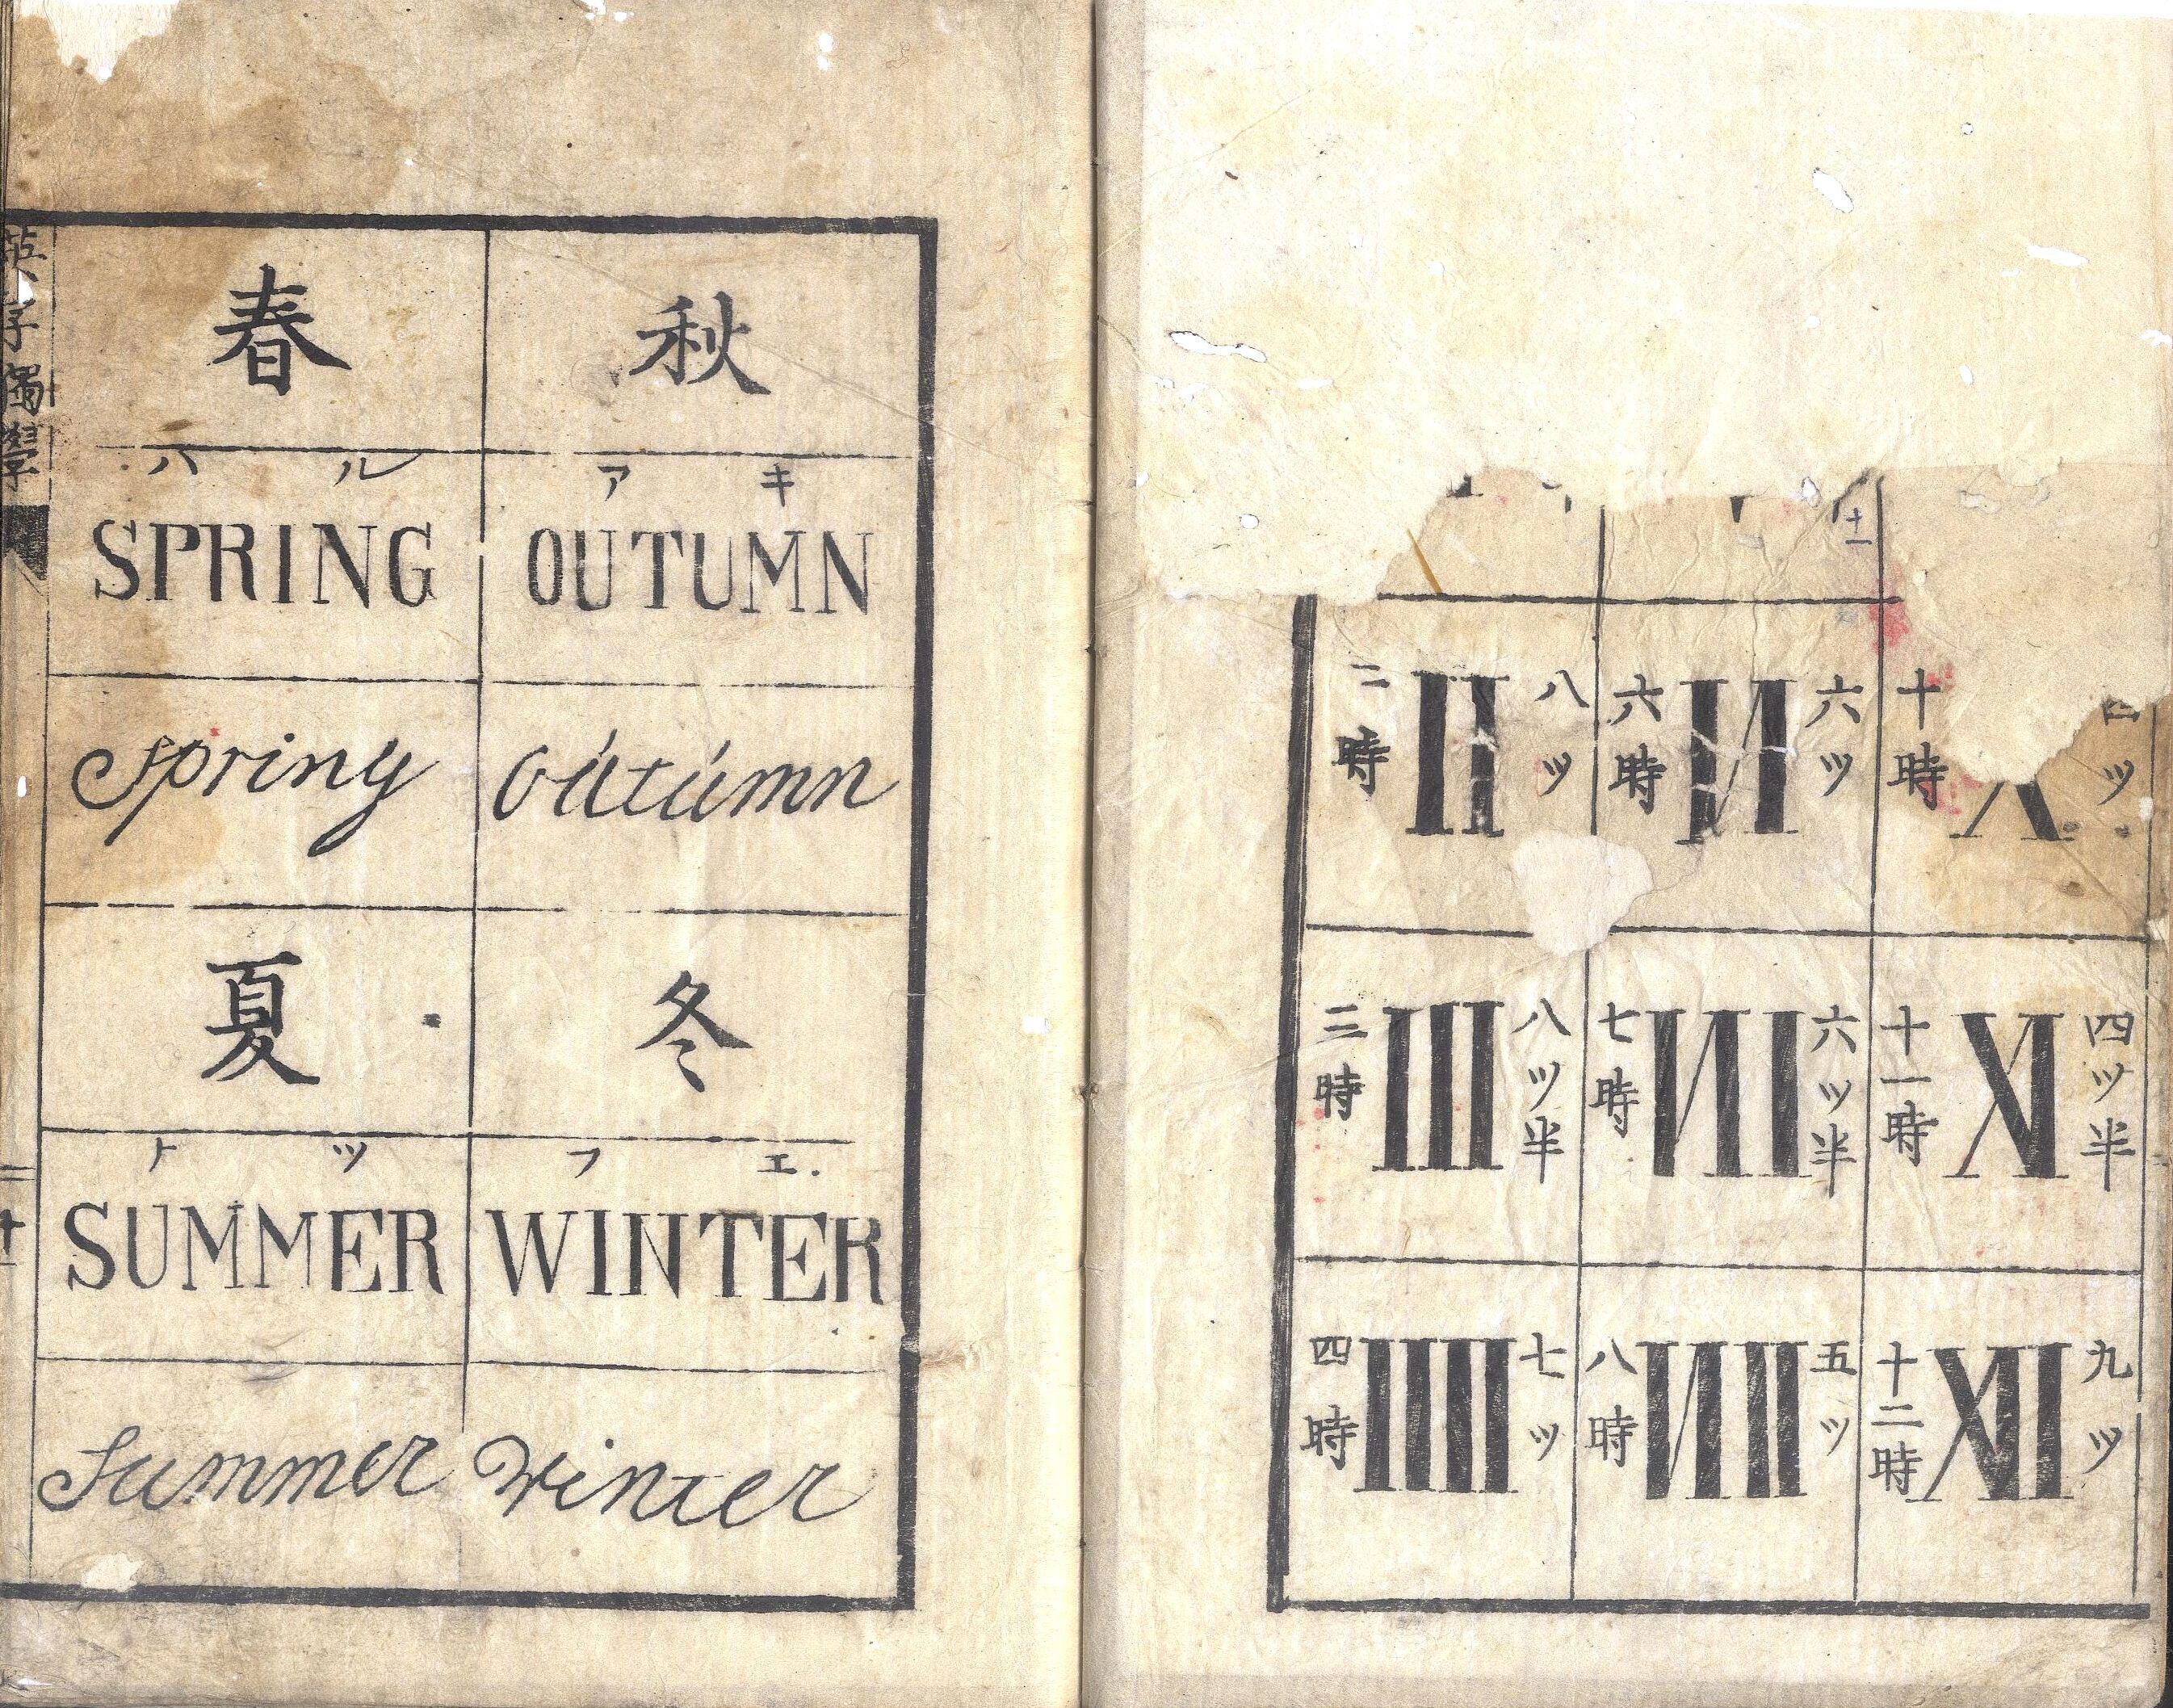 英字獨學
春 秋
ハル アキ
SPRING OUTUMN
spring outumn
夏 冬
ナツ フエ.
SUMMER WINTER
Summer Winter
十一
二時 II 八ツ 六時 VI 六ツ 十時 四ツ
三時 III 八ツ半 七時 VII 六ツ半 十一時 XI 四ツ半
四時 IIII 七ツ 八時 VIII 五ツ 十二時 XII 九ツ